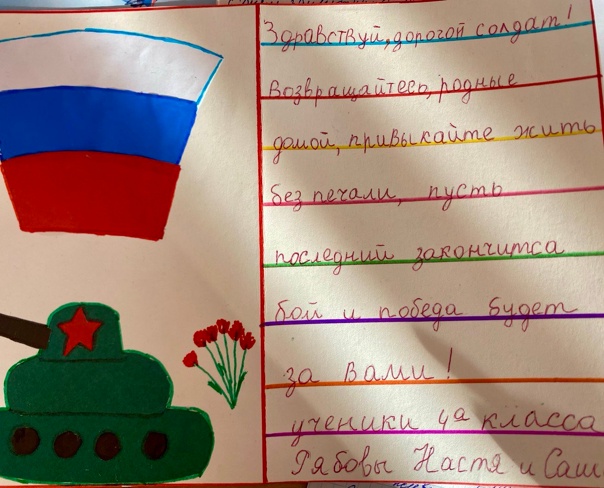 Здравствуй, дорогой солдат!
Возвращайтесь, родные
домой, привыкайте жить
без печали, пусть
последний закончитса
бой и победа будет
за вами!
ученики 4а класса
Рябовы Настя и Саш